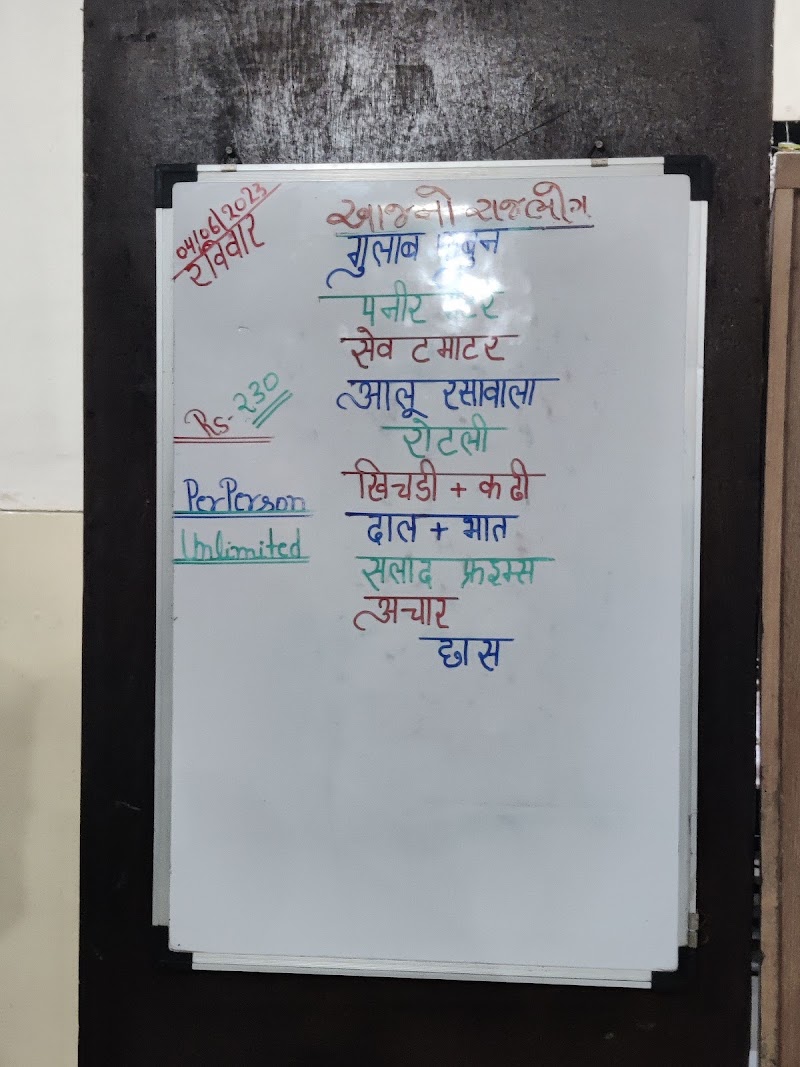 04/06/2023
रविवार
આજનો રાજભોગ
गुलाब
पनीर
सेव टमाटर
आलू रसावाला
रोटली
खिचडी + कढी
दाल + भात
सलाद फ्रइम्स
अचार
छास
Rs. 230
PerPerson
Unlimited